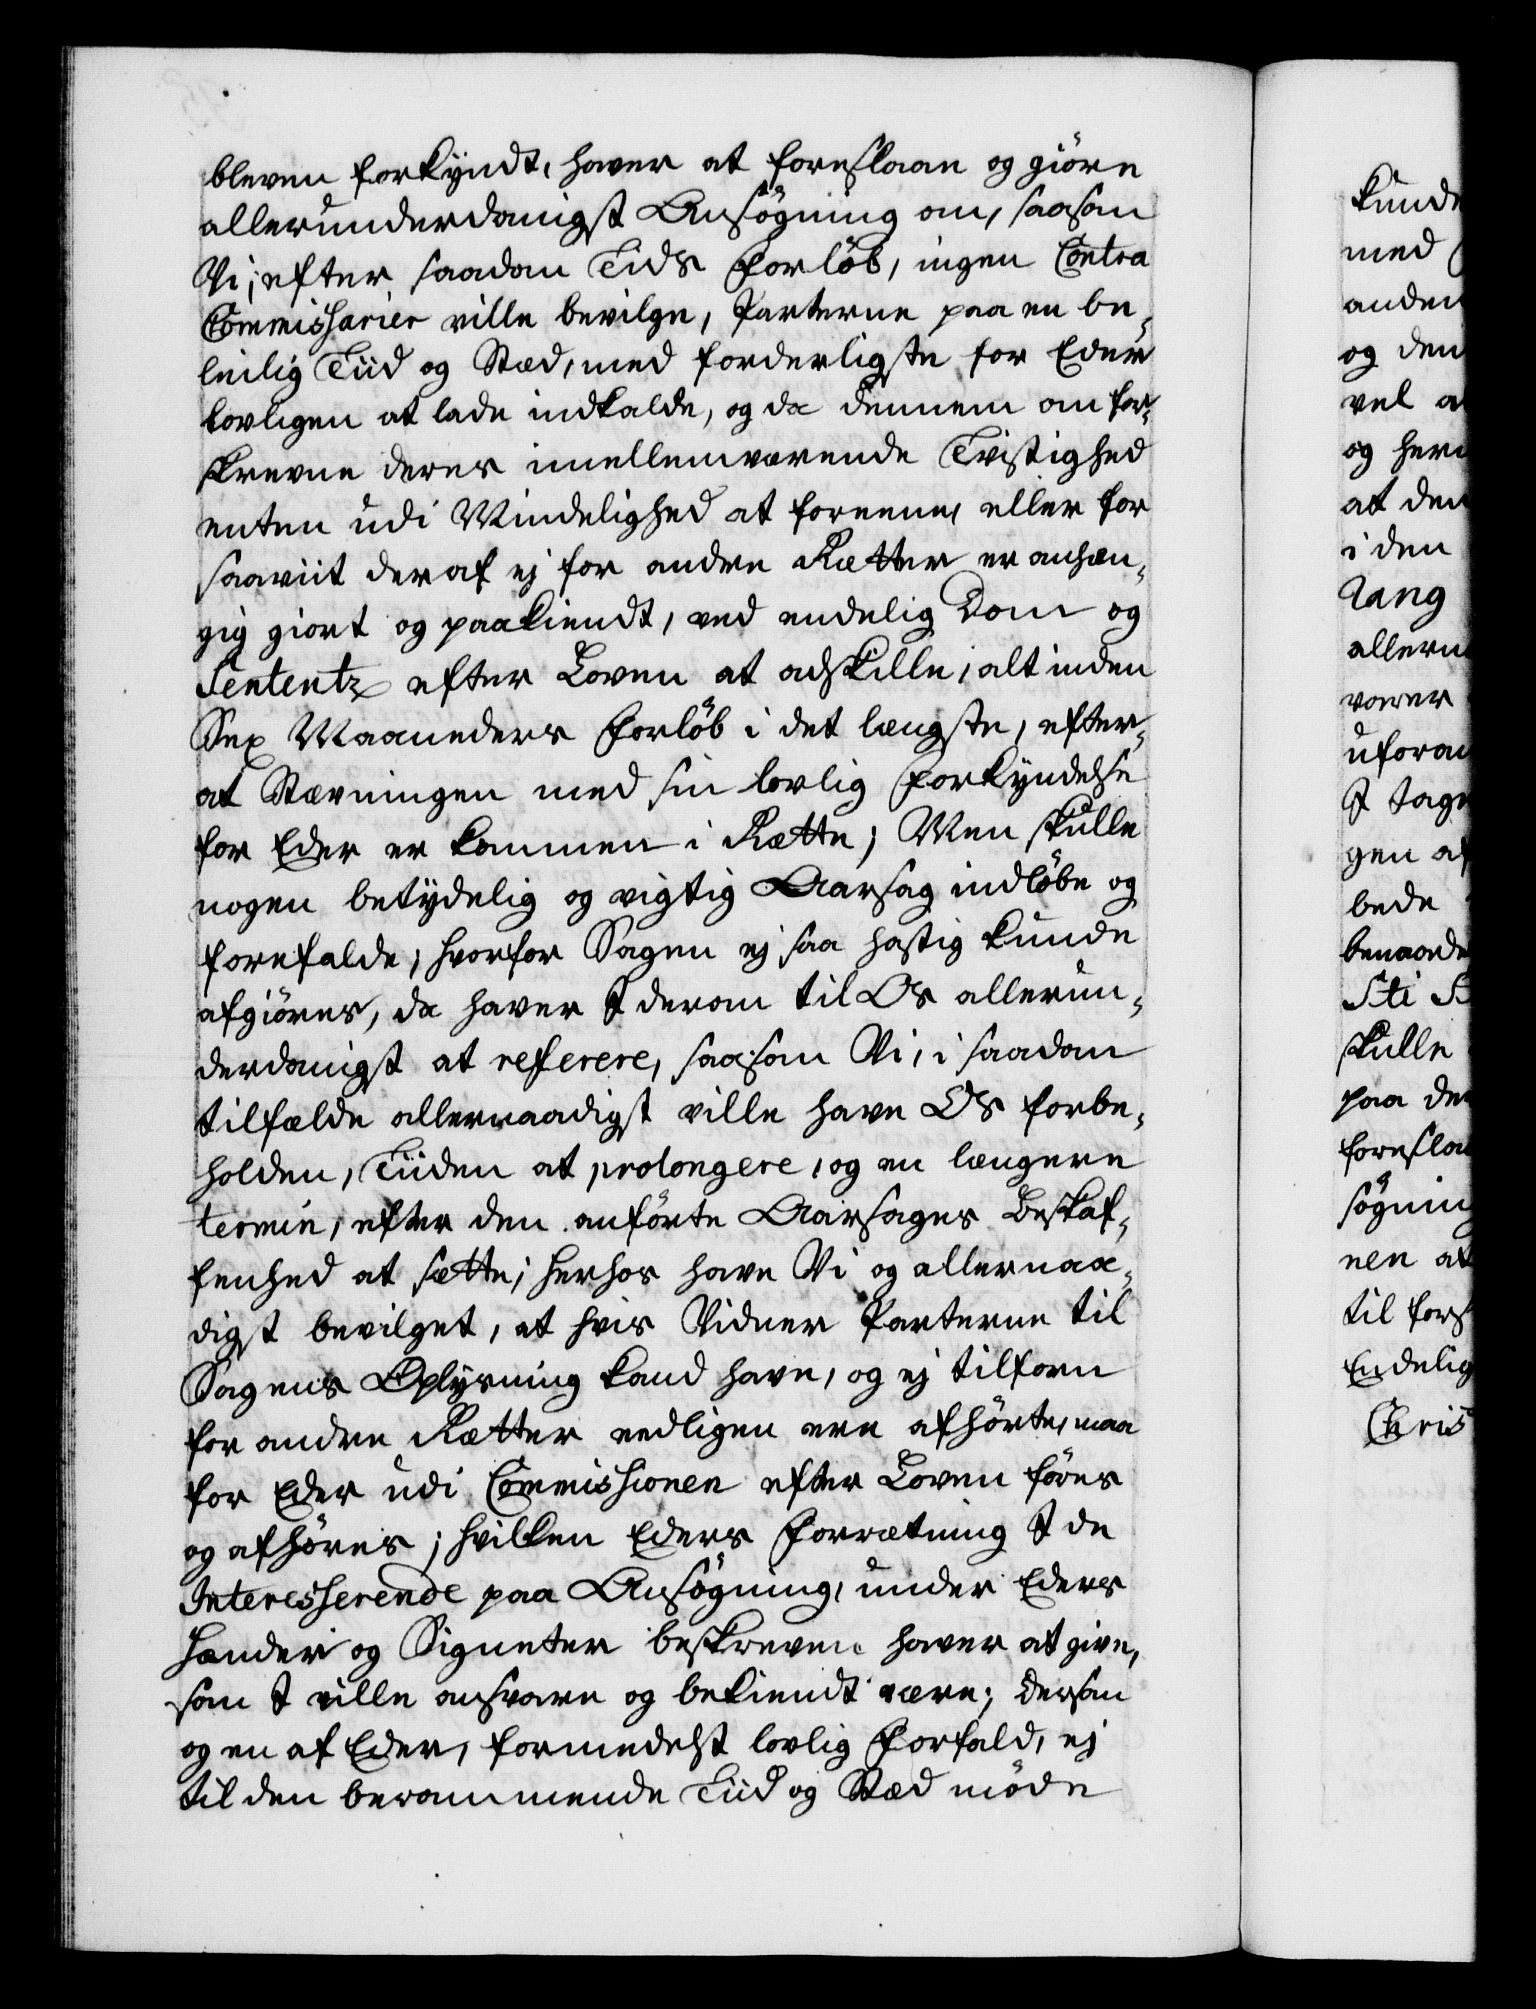 bleven forkyndt, haver at foreslaae og giöre
allerunderdanigst Ansögning om, saasom
Vi, efter saadan Tids Forlöb, ingen Contra
Commissarier ville bevilge, Parterne paa en be-
leilig Tiid og Stæd, med forderligste for Eder
lovligen at lade indkalde, og da dennem om for-
skrevne deres imellemværende Tvistighed
enten udi Mindelighed at foreene, eller for
saaviit deraf ej for andre Rætter er anhæn-
gig giort og paakiendt, ved endelig Dom og
Sententz efter Loven at adskille, alt inden
Sex Maaneders Forlöb i det længste, efter-
at Stævningen med sin lovlig Forkyndelse
for Eder er kommen i Rætte; Men skulle
nogen betydelig og vigtig Aarsag indlöbe og
forefalde, hvorfor Sagen ej saa hastig kunde
afgiöres, da haver I derom til Os allerun-
derdanigst at referere, saasom Vi, i saadan
tilfælde allernaadigst ville have Os forbe-
holden, Tiiden at prolongere, og en længere
termin, efter den anförte Aarsages Beskaf-
fenhed at sætte; Herhos have Vi og allernaa-
digst bevilget, at hvis Vidner Parterne til
Sagens Oplysning kand have, og ej tilforn
for andre Rætter eedligen ere afhörte, maa
for Eder udi Commissionen efter Loven föres
og afhöres; hvilken Eders Forrætning I de
Interesserende paa Ansögning, under Eders
Hænder og Signeter beskreven haver at give,
som I ville ansvare og bekiendt være; Dersom
og en af Eder, formedelst lovlig Forfald, ej
til den berammende Tiid og Stæd möde
kunde
med
anden
og den
vel a
og her
at den
i den
Tang
allern
værer
uforan
I tage
gen af
bede
benaade
Sti S
skulle
paa de
foresla
sögning
nen at
til fors
Endelig
Chris